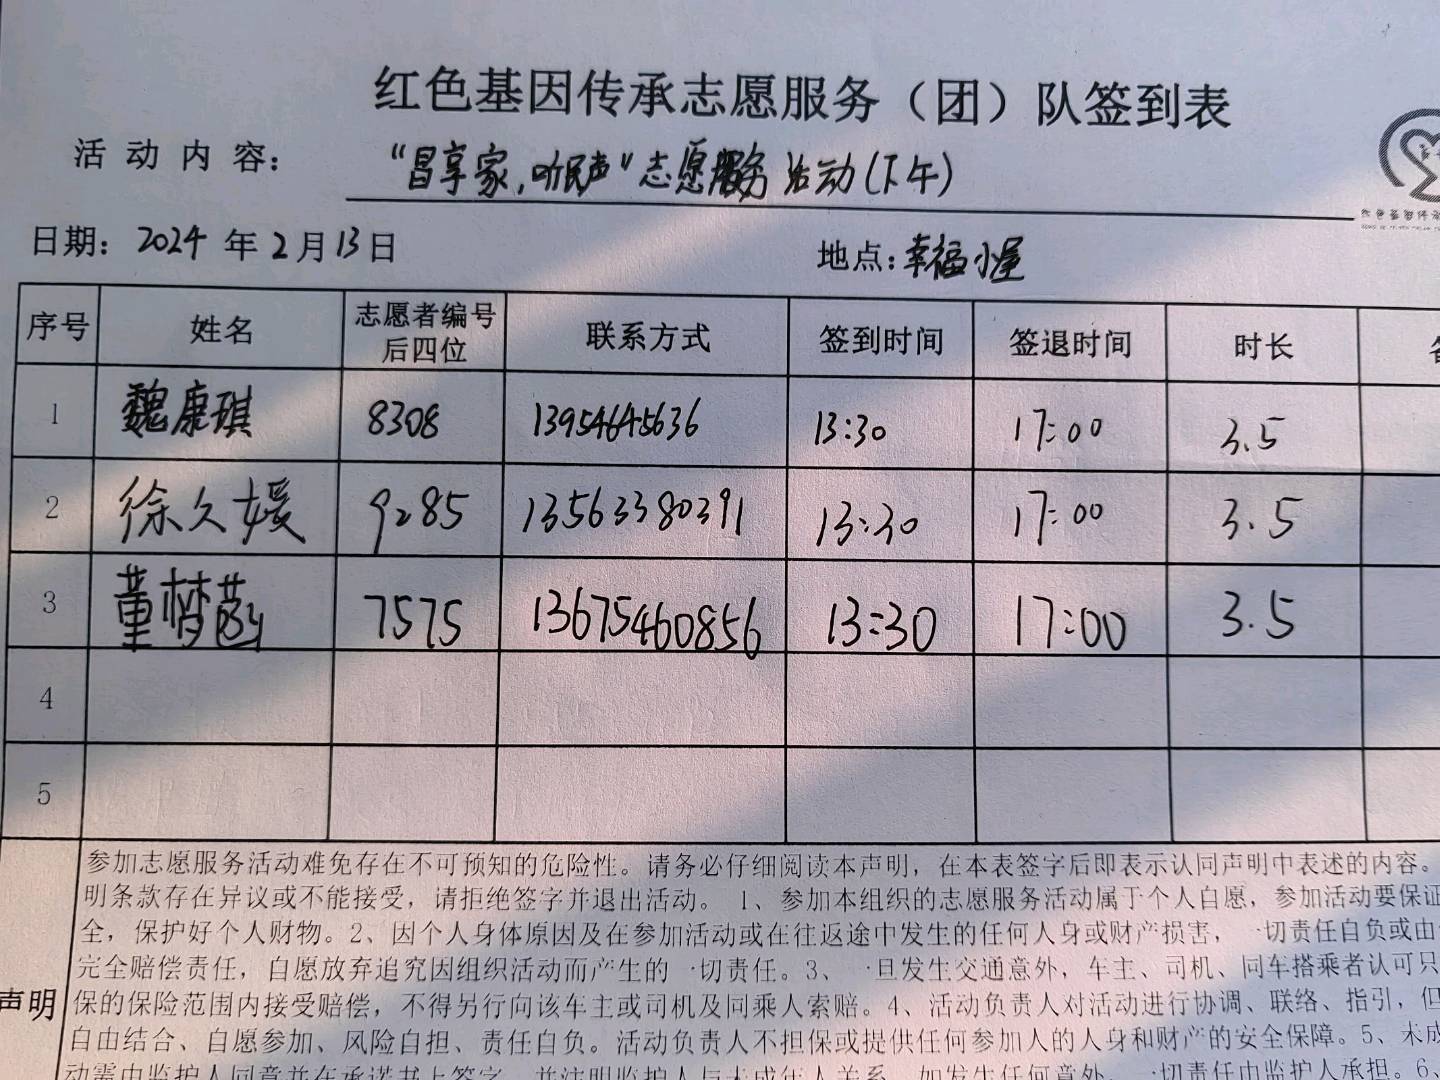 红色基因传承志愿服务（团）队签到表
活动内容：“昌享家，听民声”志愿服务活动（下午）
日期：2024年2月13日 地点：幸福小屋
序号 姓名 志愿者编号后四位 联系方式 签到时间 签退时间 时长
1 魏康琪 8308 13954645636 13:30 17:00 3.5
2 徐久媛 9285 13563380391 13:30 17:00 3.5
3 董梦菡 7575 13675460856 13:30 17:00 3.5
4
5
参加志愿服务活动难免存在不可预知的危险性。请务必仔细阅读本声明，在本表签字后即表示认同声明中表述的内容。
明条款存在异议或不能接受，请拒绝签字并退出活动。 1、参加本组织的志愿服务活动属于个人自愿，参加活动要保证
全，保护好个人财物。2、因个人身体原因及在参加活动或在往返途中发生的任何人身或财产损害，一切责任自负或由
完全赔偿责任，自愿放弃追究因组织活动而产生的一切责任。3、一旦发生交通意外，车主、司机、同车搭乘者认可只
声明 保的保险范围内接受赔偿，不得另行向该车主或司机及同乘人索赔。4、活动负责人对活动进行协调、联络、指引，但
自由结合、自愿参加、风险自担、责任自负。活动负责人不担保或提供任何参加人的人身和财产的安全保障。5、未成
动需由监护人同意并在承诺书上签字，并注明监护人与未成年人关系，如发生任何意外，一切责任由监护人承担。6、